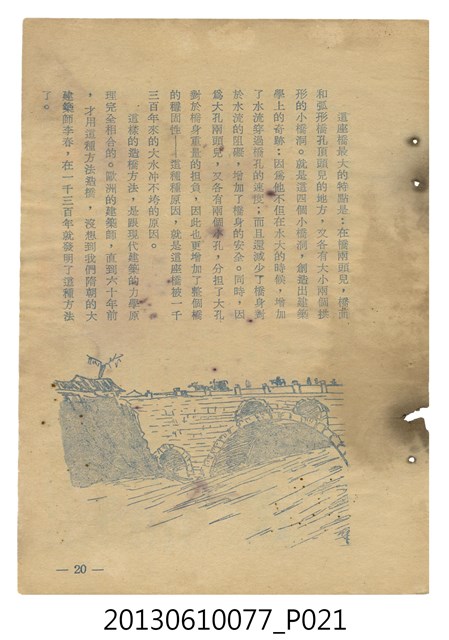 這座橋最大的特點是：在橋兩頭兒，橋面
和弧形橋孔頂頭兒的地方，又各有大小兩個拱
形的小橋洞。就是這四個小橋洞，創造出建築
學上的奇跡：因爲他不但在水大的時候，增加
了水流穿過橋孔的速度；而且還減少了橋身對
於水流的阻礙，增加了橋身的安全。同時，因
爲大孔兩頭兒，又各有兩個小孔，分担了大孔
對於橋身重量的担負，因此也更增加了整個橋
的穩固性——這種種原因，就是這座橋被一千
三百年來的大水冲不垮的原因。
這樣的造橋方法，是跟現代建築的力學原
理完全相合的。歐洲的建築師，直到六十年前
，才用這種方法造橋，沒想到我們隋朝的大
建築師李春，在一千三百年就發明了這種方法
了。
— 20 —
20130610077_P021